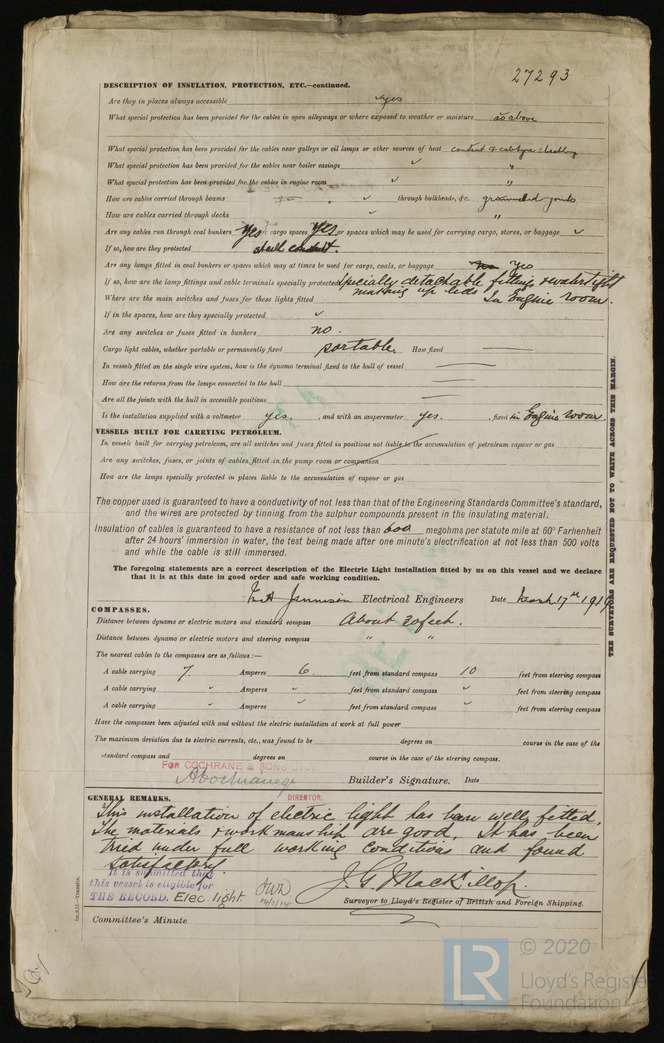 27293
DESCRIPTION OF INSULATION, PROTECTION, ETC.—continued.
Are they in places always accessible yes
What special protection has been provided for the cables in open alleyways or where exposed to weather or moisture as above
What special protection has been provided for the cables near galleys or oil lamps or other sources of heat
What special protection has been provided for the cables near boiler casings ✓ "
What special protection has been provided for the cables in engine room ✓ "
How are cables carried through beams ✓ through bulkheads, &c.
How are cables carried through decks ✓ "
Are any cables run through coal bunkers Yes or cargo spaces Yes or spaces which may be used for carrying cargo, stores, or baggage ✓
If so, how are they protected steel conduit.
Are any lamps fitted in coal bunkers or spaces which may at times be used for cargo, coals, or baggage Yes
If so, how are the lamp fittings and cable terminals specially protected Specially detachable fittings & watertight
making up lids
Where are the main switches and fuses for these lights fitted In Engine room.
If in the spaces, how are they specially protected ✓
Are any switches or fuses fitted in bunkers no.
Cargo light cables, whether portable or permanently fixed portable. How fixed
In vessels fitted on the single wire system, how is the dynamo terminal fixed to the hull of vessel
How are the returns from the lamps connected to the hull
Are all the joints with the hull in accessible positions
Is the installation supplied with a voltmeter yes. and with an amperemeter yes. , fixed in Engine room.
VESSELS BUILT FOR CARRYING PETROLEUM.
In vessels built for carrying petroleum, are all switches and fuses fitted in positions not liable to the accumulation of petroleum vapour or gas
Are any switches, fuses, or joints of cables fitted in the pump room or companion
How are the lamps specially protected in places liable to the accumulation of vapour or gas
The copper used is guaranteed to have a conductivity of not less than that of the Engineering Standards Committee's standard,
and the wires are protected by tinning from the sulphur compounds present in the insulating material.
Insulation of cables is guaranteed to have a resistance of not less than 600 megohms per statute mile at 60° Farhenheit
after 24 hours' immersion in water, the test being made after one minute's electrification at not less than 500 volts
and while the cable is still immersed.
The foregoing statements are a correct description of the Electric Light installation fitted by us on this vessel and we declare
that it is at this date in good order and safe working condition.
Electrical Engineers Date March 17th
COMPASSES.
Distance between dynamo or electric motors and standard compass About 20 feet.
Distance between dynamo or electric motors and steering compass " "
The nearest cables to the compasses are as follows:—
A cable carrying 7 Amperes 6 feet from standard compass 10 feet from steering compass
A cable carrying " Amperes " feet from standard compass " feet from steering compass
A cable carrying " Amperes " feet from standard compass " feet from steering compass
Have the compasses been adjusted with and without the electric installation at work at full power
The maximum deviation due to electric currents, etc., was found to be degrees on course in the case of the
standard compass and degrees on course in the case of the steering compass.
FOR COCHRANE & SONS LTD.
Builder's Signature. Date
DIRECTOR.
GENERAL REMARKS.
This installation of electric light has been well fitted.
The materials & workmanship are good. It has been
tried under full working conditions and found
satisfactory.
It is submitted that
this vessel is eligible for
THE RECORD. Elec. light.
J. G. MacKillop.
Surveyor to Lloyd's Register of British and Foreign Shipping.
Committee's Minute
THE SURVEYORS ARE REQUESTED NOT TO WRITE ACROSS THIS MARGIN.
LR
© 2020
Lloyd's Register
Foundation